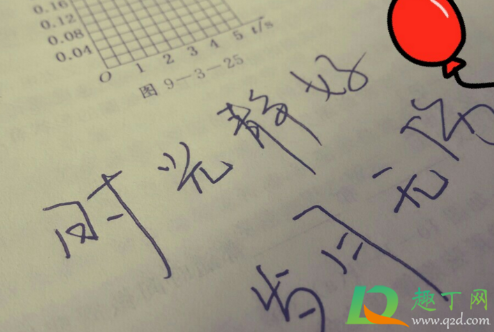 0.16
0.12
0.08
0.04
O 1 2 3 4 5 t/s
图 9-3-25
时光静好
与 无
趣丁网
www.q2d.com